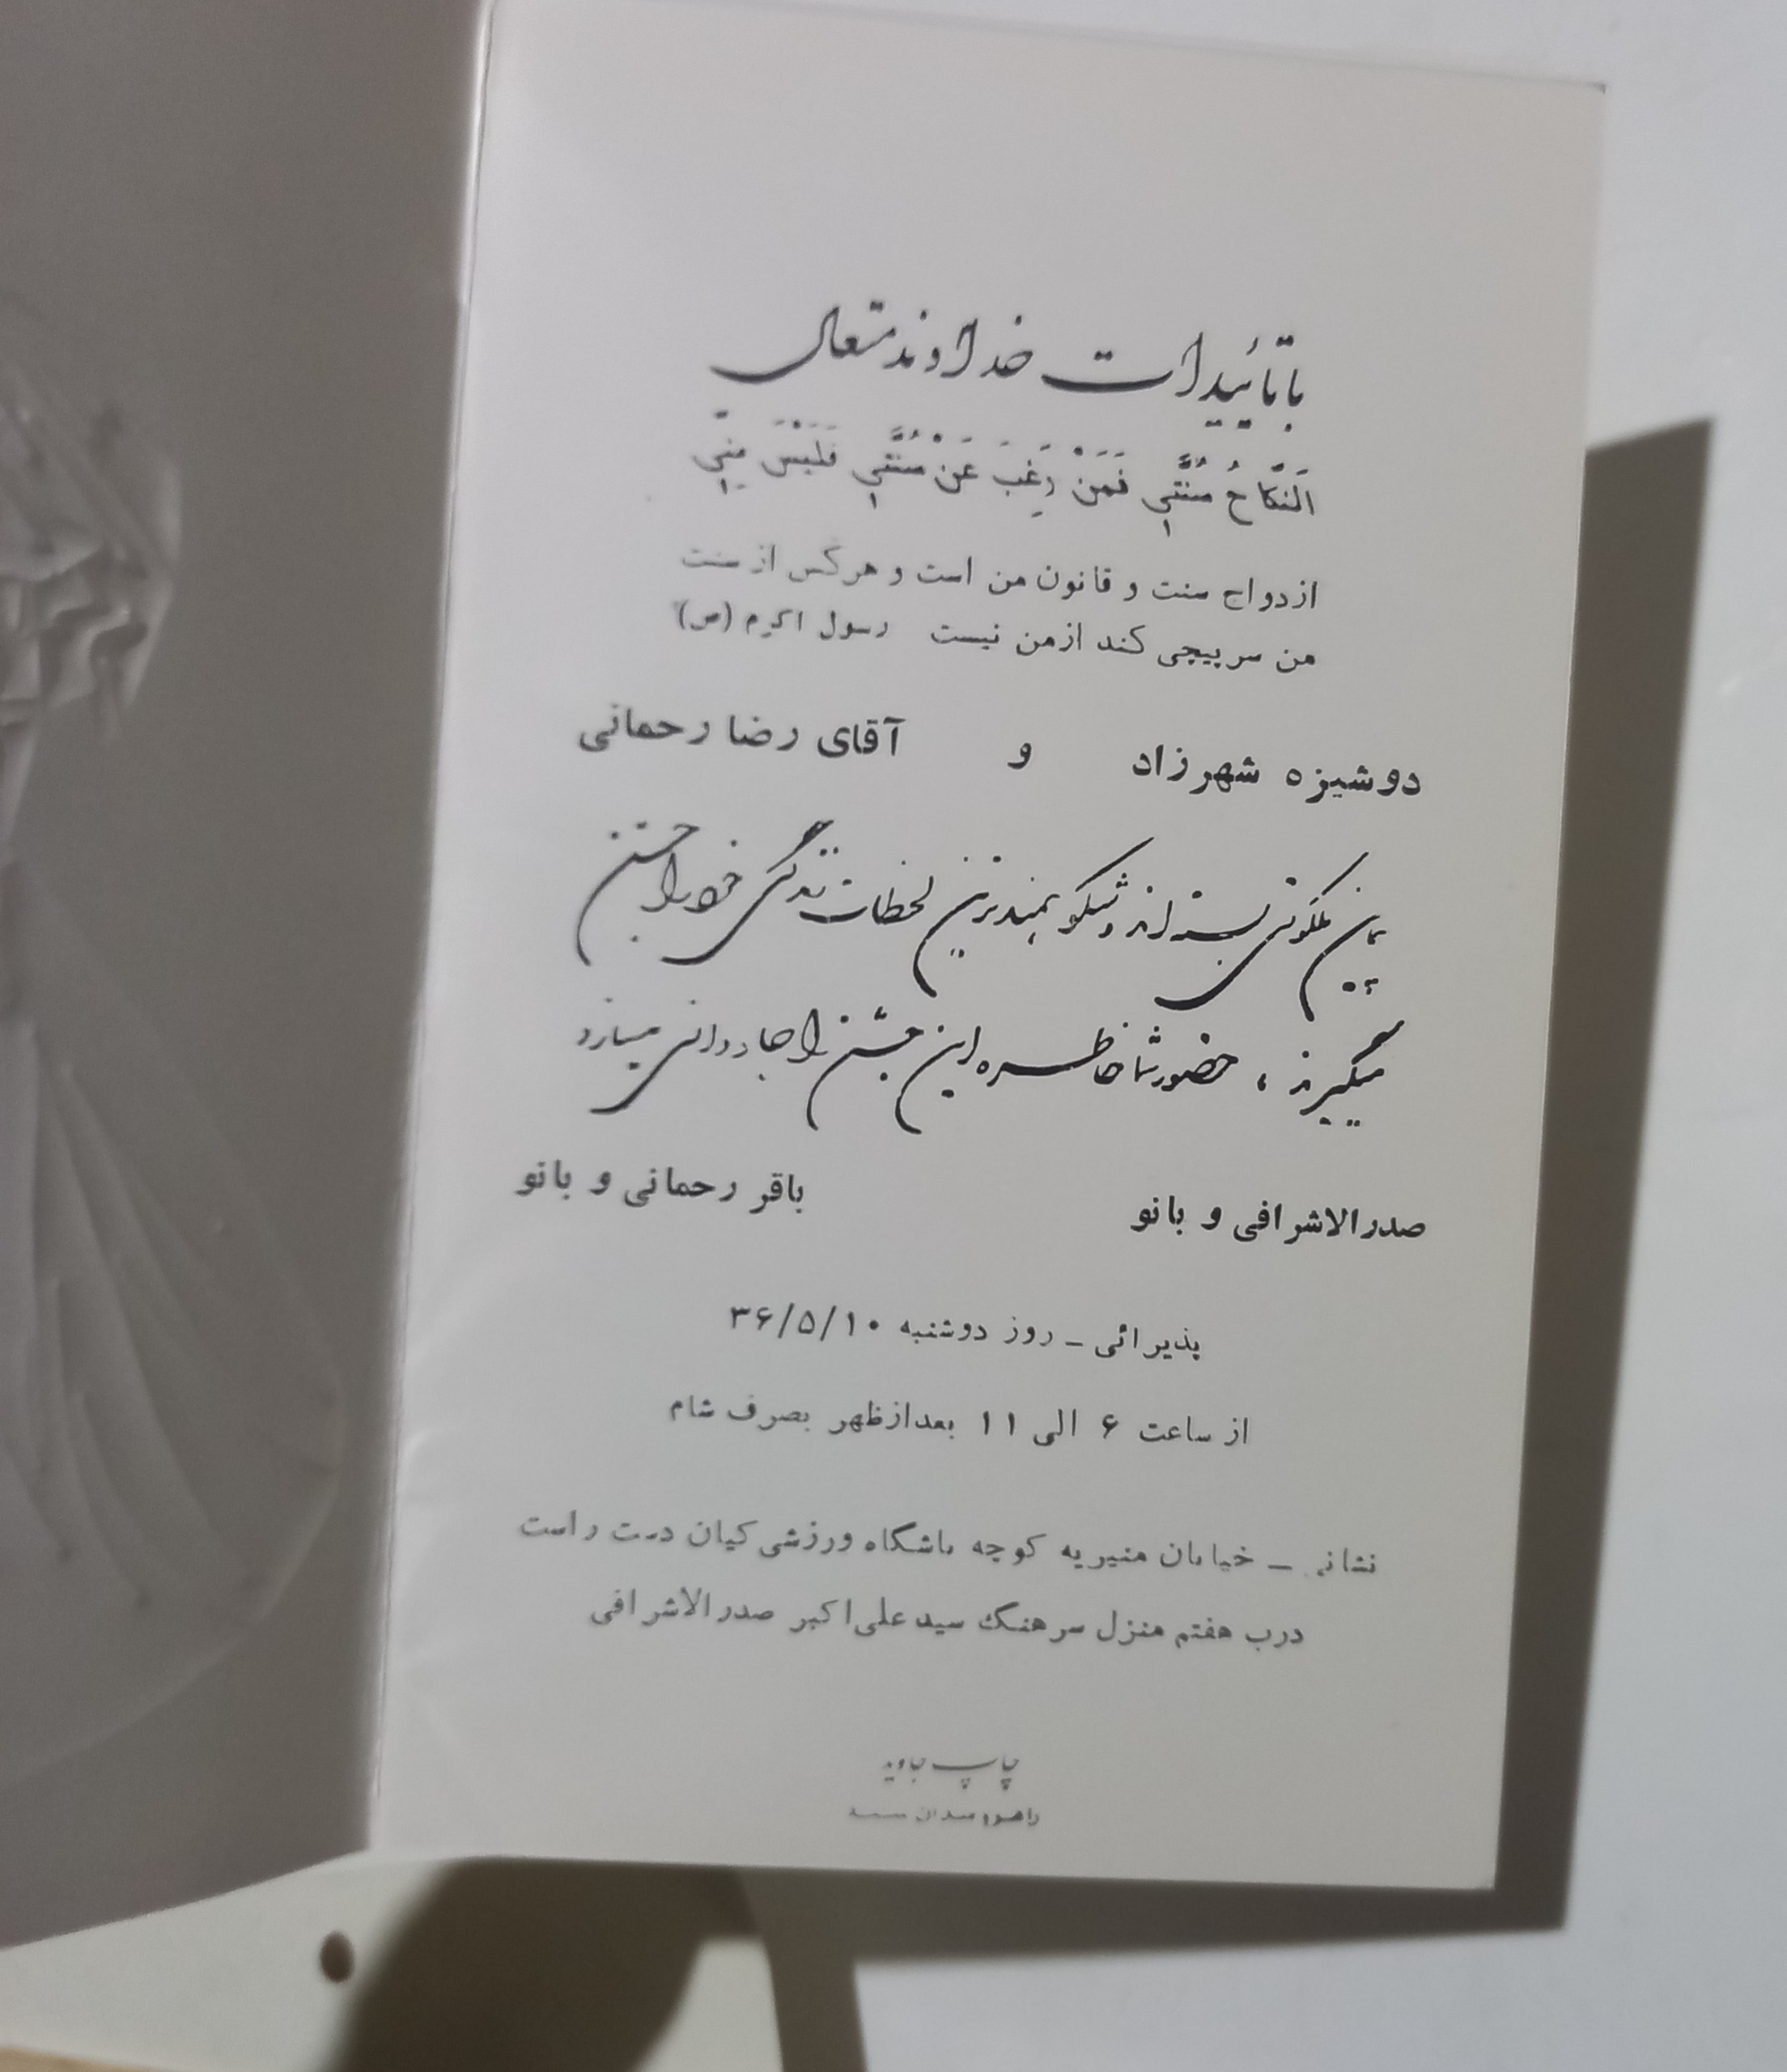 با تائیدات خداوند متعال
اَلنِّکاحُ سُنَّتی فَمَنْ رَغِبَ عَنْ سُنَّتی فَلَیْسَ مِنّی
ازدواج سنت و قانون من است و هرکس از سنت
من سرپیچی کند ازمن نیست رسول اکرم (ص)
دوشیزه شهرزاد و آقای رضا رحمانی
پیمان ملکوتی بسته اند و شکوهمندترین لحظات زندگی خود را جشن
میگیرند ، حضور شما خاطره این جشن را جاودانی میسازد
صدرالاشرافی و بانو باقر رحمانی و بانو
پذیرائی ـ روز دوشنبه ۳۶/۵/۱۰
از ساعت ۶ الی ۱۱ بعدازظهر بصرف شام
نشانی ـ خیابان منیریه کوچه باشگاه ورزشی کیان دست راست
درب هفتم منزل سرهنگ سید علی اکبر صدرالاشرافی
چاپ جاوید